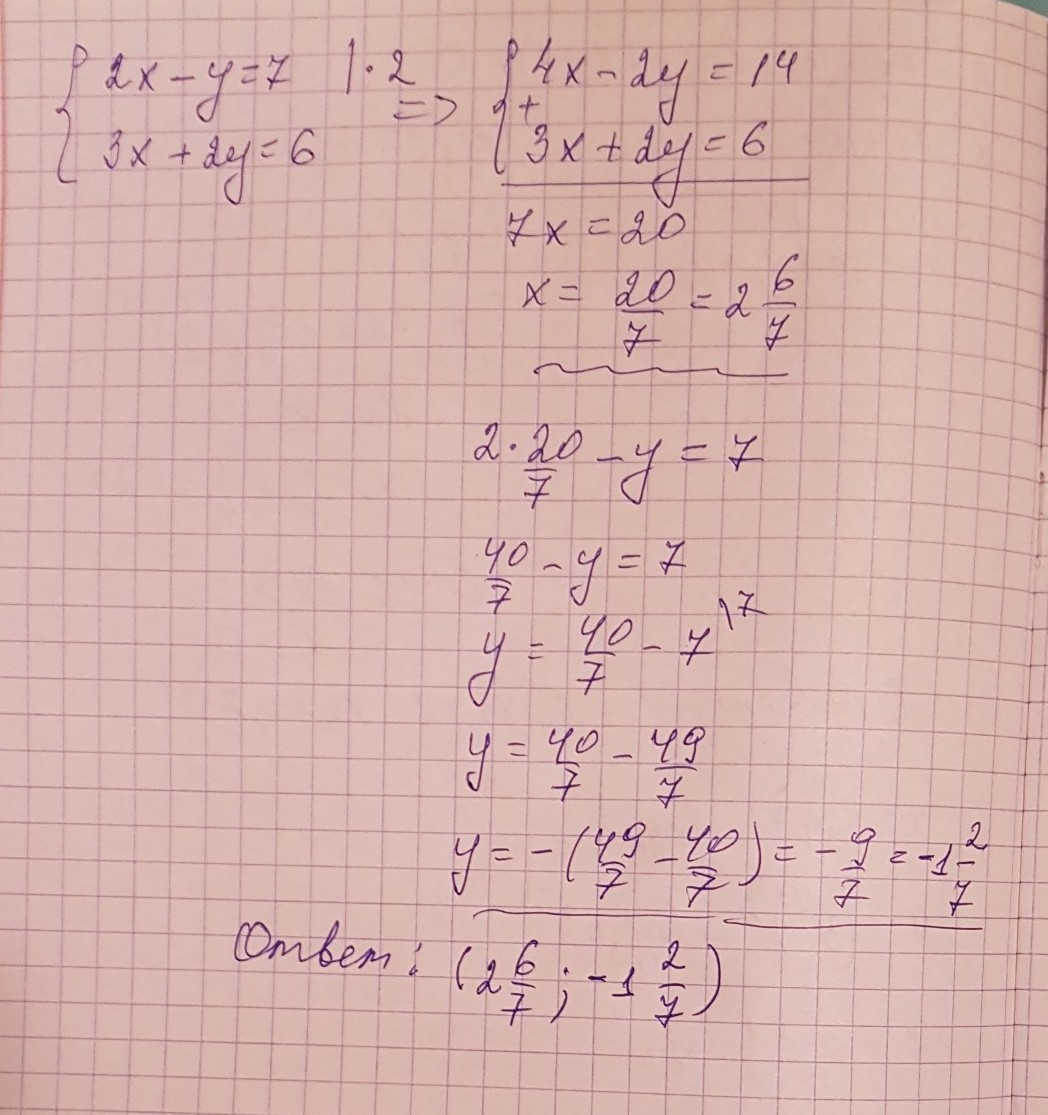 { 2x - y = 7 | · 2 => { 4x - 2y = 14
+
3x + 2y = 6 3x + 2y = 6
7x = 20
x = 20/7 = 2 6/7
2 · 20/7 - y = 7
40/7 - y = 7
y = 40/7 - 7 \7
y = 40/7 - 49/7
y = -(49/7 - 40/7) = - 9/7 = -1 2/7
Ответ: (2 6/7 ; -1 2/7)